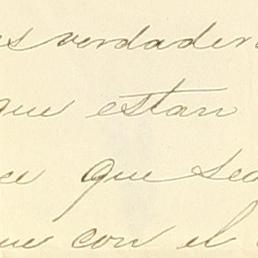 es verdader
que estan
ce que sea
ue con el